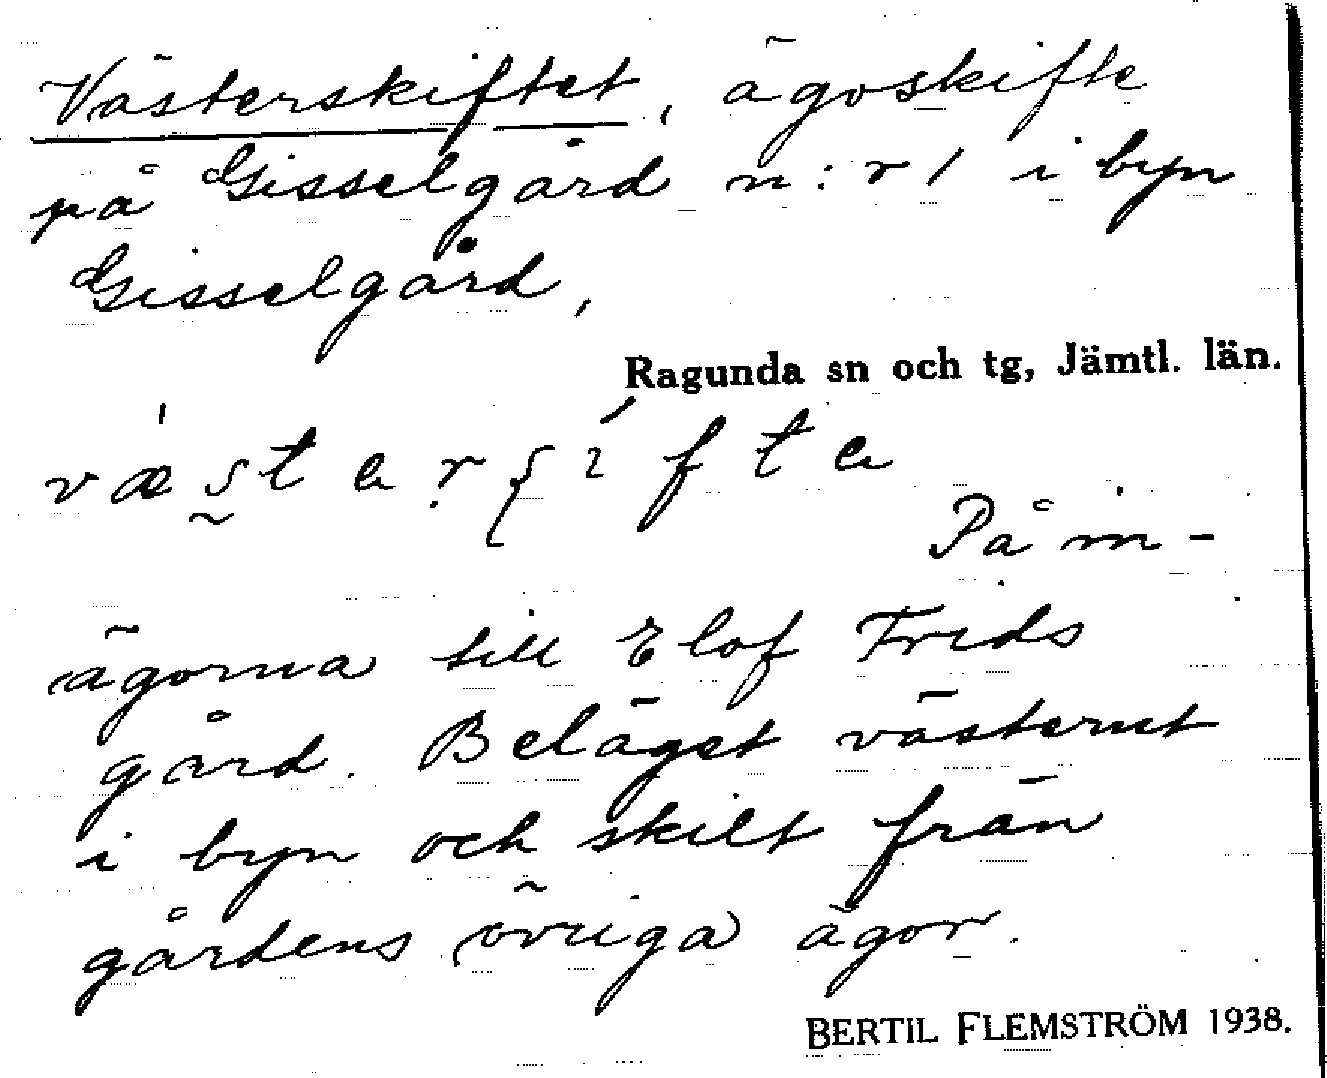 Västerskiftet, ägoskifte
på Gisselgård n:r 1 i byn
Gisselgård,
Ragunda sn och tg, Jämtl. län.
På in-
ägorna till Elof Frids
gård. Beläget västerut
i byn och skilt från
gårdens övriga ägor.
BERTIL FLEMSTRÖM 1938.